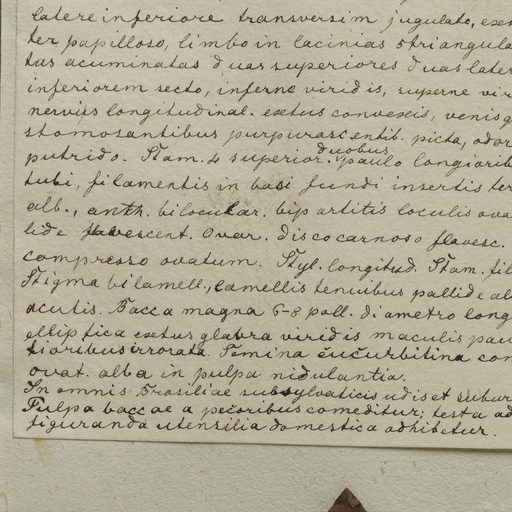 latere inferiore transversim jugulato, exer
ter papilloso, limbo in lacinias 5 triangula
tas acuminatas duas superiores duas later
inferiorem secto, inferne viridis, superne vir
nerviis longitudinal. extus convexis, venis
stomosantibus purpurascentib. picta, odor
putrido. Stam. 4 superior. duobus paulo longiorib
tubi, filamentis in basi fundi insertis ter
alb., anth. bilocular. bipartitis loculis ova
lide flavescent. Ovar. disco carnoso flavesc.
compresso ovatum. Styl. longitud. Stam. fil
Stigma bilamell., lamellis tenuibus pallide al
acutis. Bacca magna 6-8 poll. diametro long
elliptica extus glabra viridis maculis pau
tioribus irrorata. Semina cucurbitina con
ovat. alba in pulpa nidulantia.
In omnis Brasiliae subsylvaticis udis et subur
Pulpa baccae a pecoribus comeditur; testa ad
figuranda utensilia domestica adhibetur.